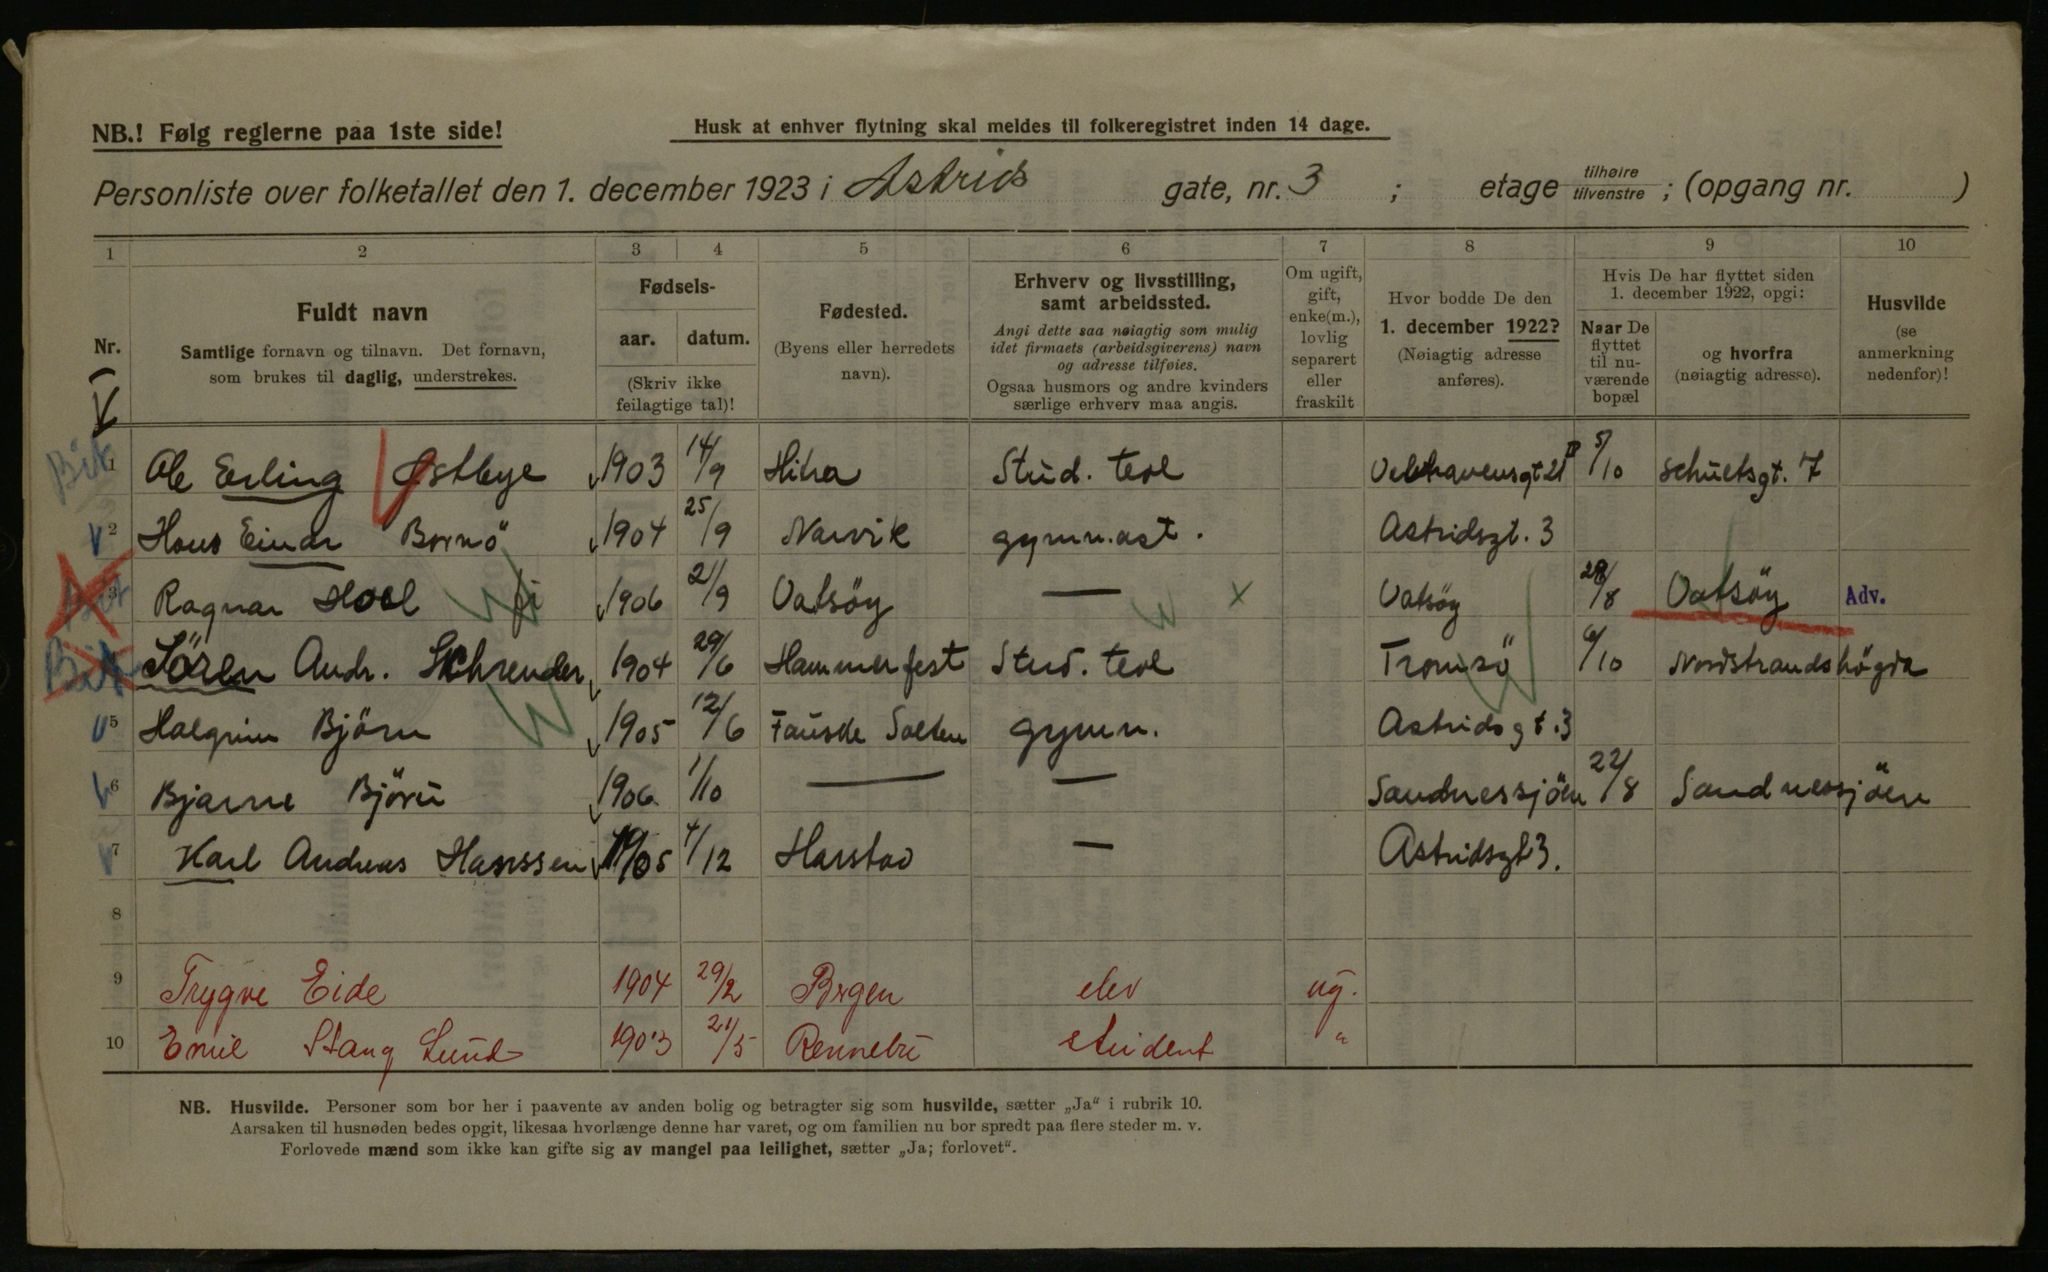 NB.! Følg reglerne paa 1ste side!
Husk at enhver flytning skal meldes til folkeregistret inden 14 dage.
Personliste over folketallet den 1. december 1923 i Astrids gate, nr. 3 ; etage tilhøire tilvenstre ; (opgang nr. )
1 2 3 4 5 6 7 8 9 10
Nr.
Fuldt navn
Samtlige fornavn og tilnavn. Det fornavn,
som brukes til daglig, understrekes.
Fødsels-
aar. datum.
(Skriv ikke
feilagtige tal)!
Fødested.
(Byens eller herredets
navn).
Erhverv og livsstilling,
samt arbeidssted.
Angi dette saa nøiagtig som mulig
idet firmaets (arbeidsgiverens) navn
og adresse tilføies.
Ogsaa husmors og andre kvinders
særlige erhverv maa angis.
Om ugift,
gift,
enke(m.),
lovlig
separert
eller
fraskilt
Hvor bodde De den
1. december 1922?
(Nøiagtig adresse
anføres).
Hvis De har flyttet siden
1. december 1922, opgi:
Naar De
flyttet
til nu-
værende
bopæl
og hvorfra
(nøiagtig adresse).
Husvilde
(se
anmerkning
nedenfor)!
1 Ole Erling Østbye 1903 14/9 Hitra Stud. teol 5/10 Schultsgt. 7
2 Hans Einar Bornö 1904 25/9 Narvik gymnast. Astridsgt. 3
3 Ragnar Hoel 1906 21/9 Vatsöy — Vatsöy 28/8 Vatsöy Adv.
Sören Andr. Schrender 1904 29/6 Hammerfest Stud. teol Tromsö 6/10 Nordstrandshögda
5 Halgrim Björn 1905 12/6 Fauske Salten gymn. Astridsgt. 3
6 Bjarne Björn 1906 1/10 — — Sandnessjöen 22/8 Sandnessjöen
7 Karl Andreas Hanssen 05 4/12 Harstad — Astridsgt 3.
8
9 Trygve Eide 1904 29/2 Bergen elev ug.
10 Emil Stang Lund 1903 21/5 Rennebu student "
NB. Husvilde. Personer som bor her i paavente av anden bolig og betragter sig som husvilde, sætter „Ja“ i rubrik 10.
Aarsaken til husnøden bedes opgit, likesaa hvorlænge denne har varet, og om familien nu bor spredt paa flere steder m. v.
Forlovede mænd som ikke kan gifte sig av mangel paa leilighet, sætter „Ja; forlovet“.